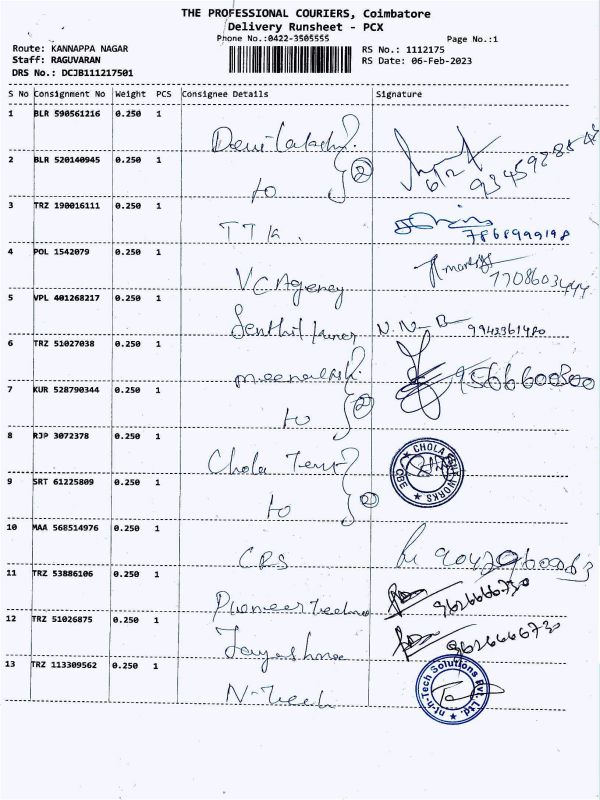 THE PROFESSIONAL COURIERS, Coimbatore
Delivery Runsheet - PCX
Phone No.:0422-3505555
Page No.:1
Route: KANNAPPA NAGAR
RS No.: 1112175
Staff: RAGUVARAN
RS Date: 06-Feb-2023
DRS No.: DCJB111217501
S No Consignment No Weight PCS Consignee Details Signature
1 BLR 590561216 0.250 1
2 BLR 520140945 0.250 1 to 2 6/2
3 TRZ 190016111 0.250 1 TTK. 7868999198
4 POL 1542079 0.250 1 VC Agency 7708603444
5 VPL 401268217 0.250 1 N.N-B 9942361480
6 TRZ 51027038 0.250 1 9566600300
7 KUR 528790344 0.250 1 to 2
8 RJP 3072378 0.250 1 Chola CHOLA WORKS CBE
9 SRT 61225809 0.250 1 to 2
10 MAA 568514976 0.250 1 CRS
11 TRZ 53886106 0.250 1 Pioneer 9626666730
12 TRZ 51026875 0.250 1 9626666730
13 TRZ 113309562 0.250 1 N-Tech nt-h-Tech Solutions Pvt. Ltd.